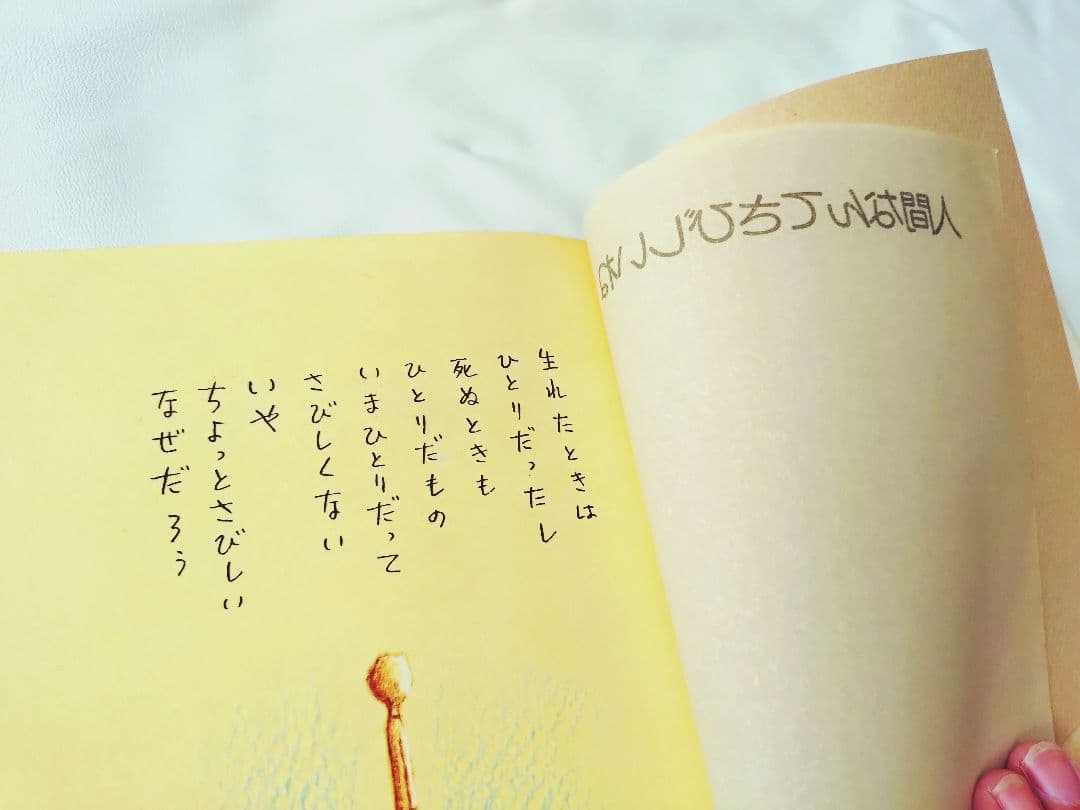 人間なんてさびしいね
生れたときは
ひとりだったし
死ぬときも
ひとりだもの
いまひとりだって
さびしくない
いや
ちょっとさびしい
なぜだろう